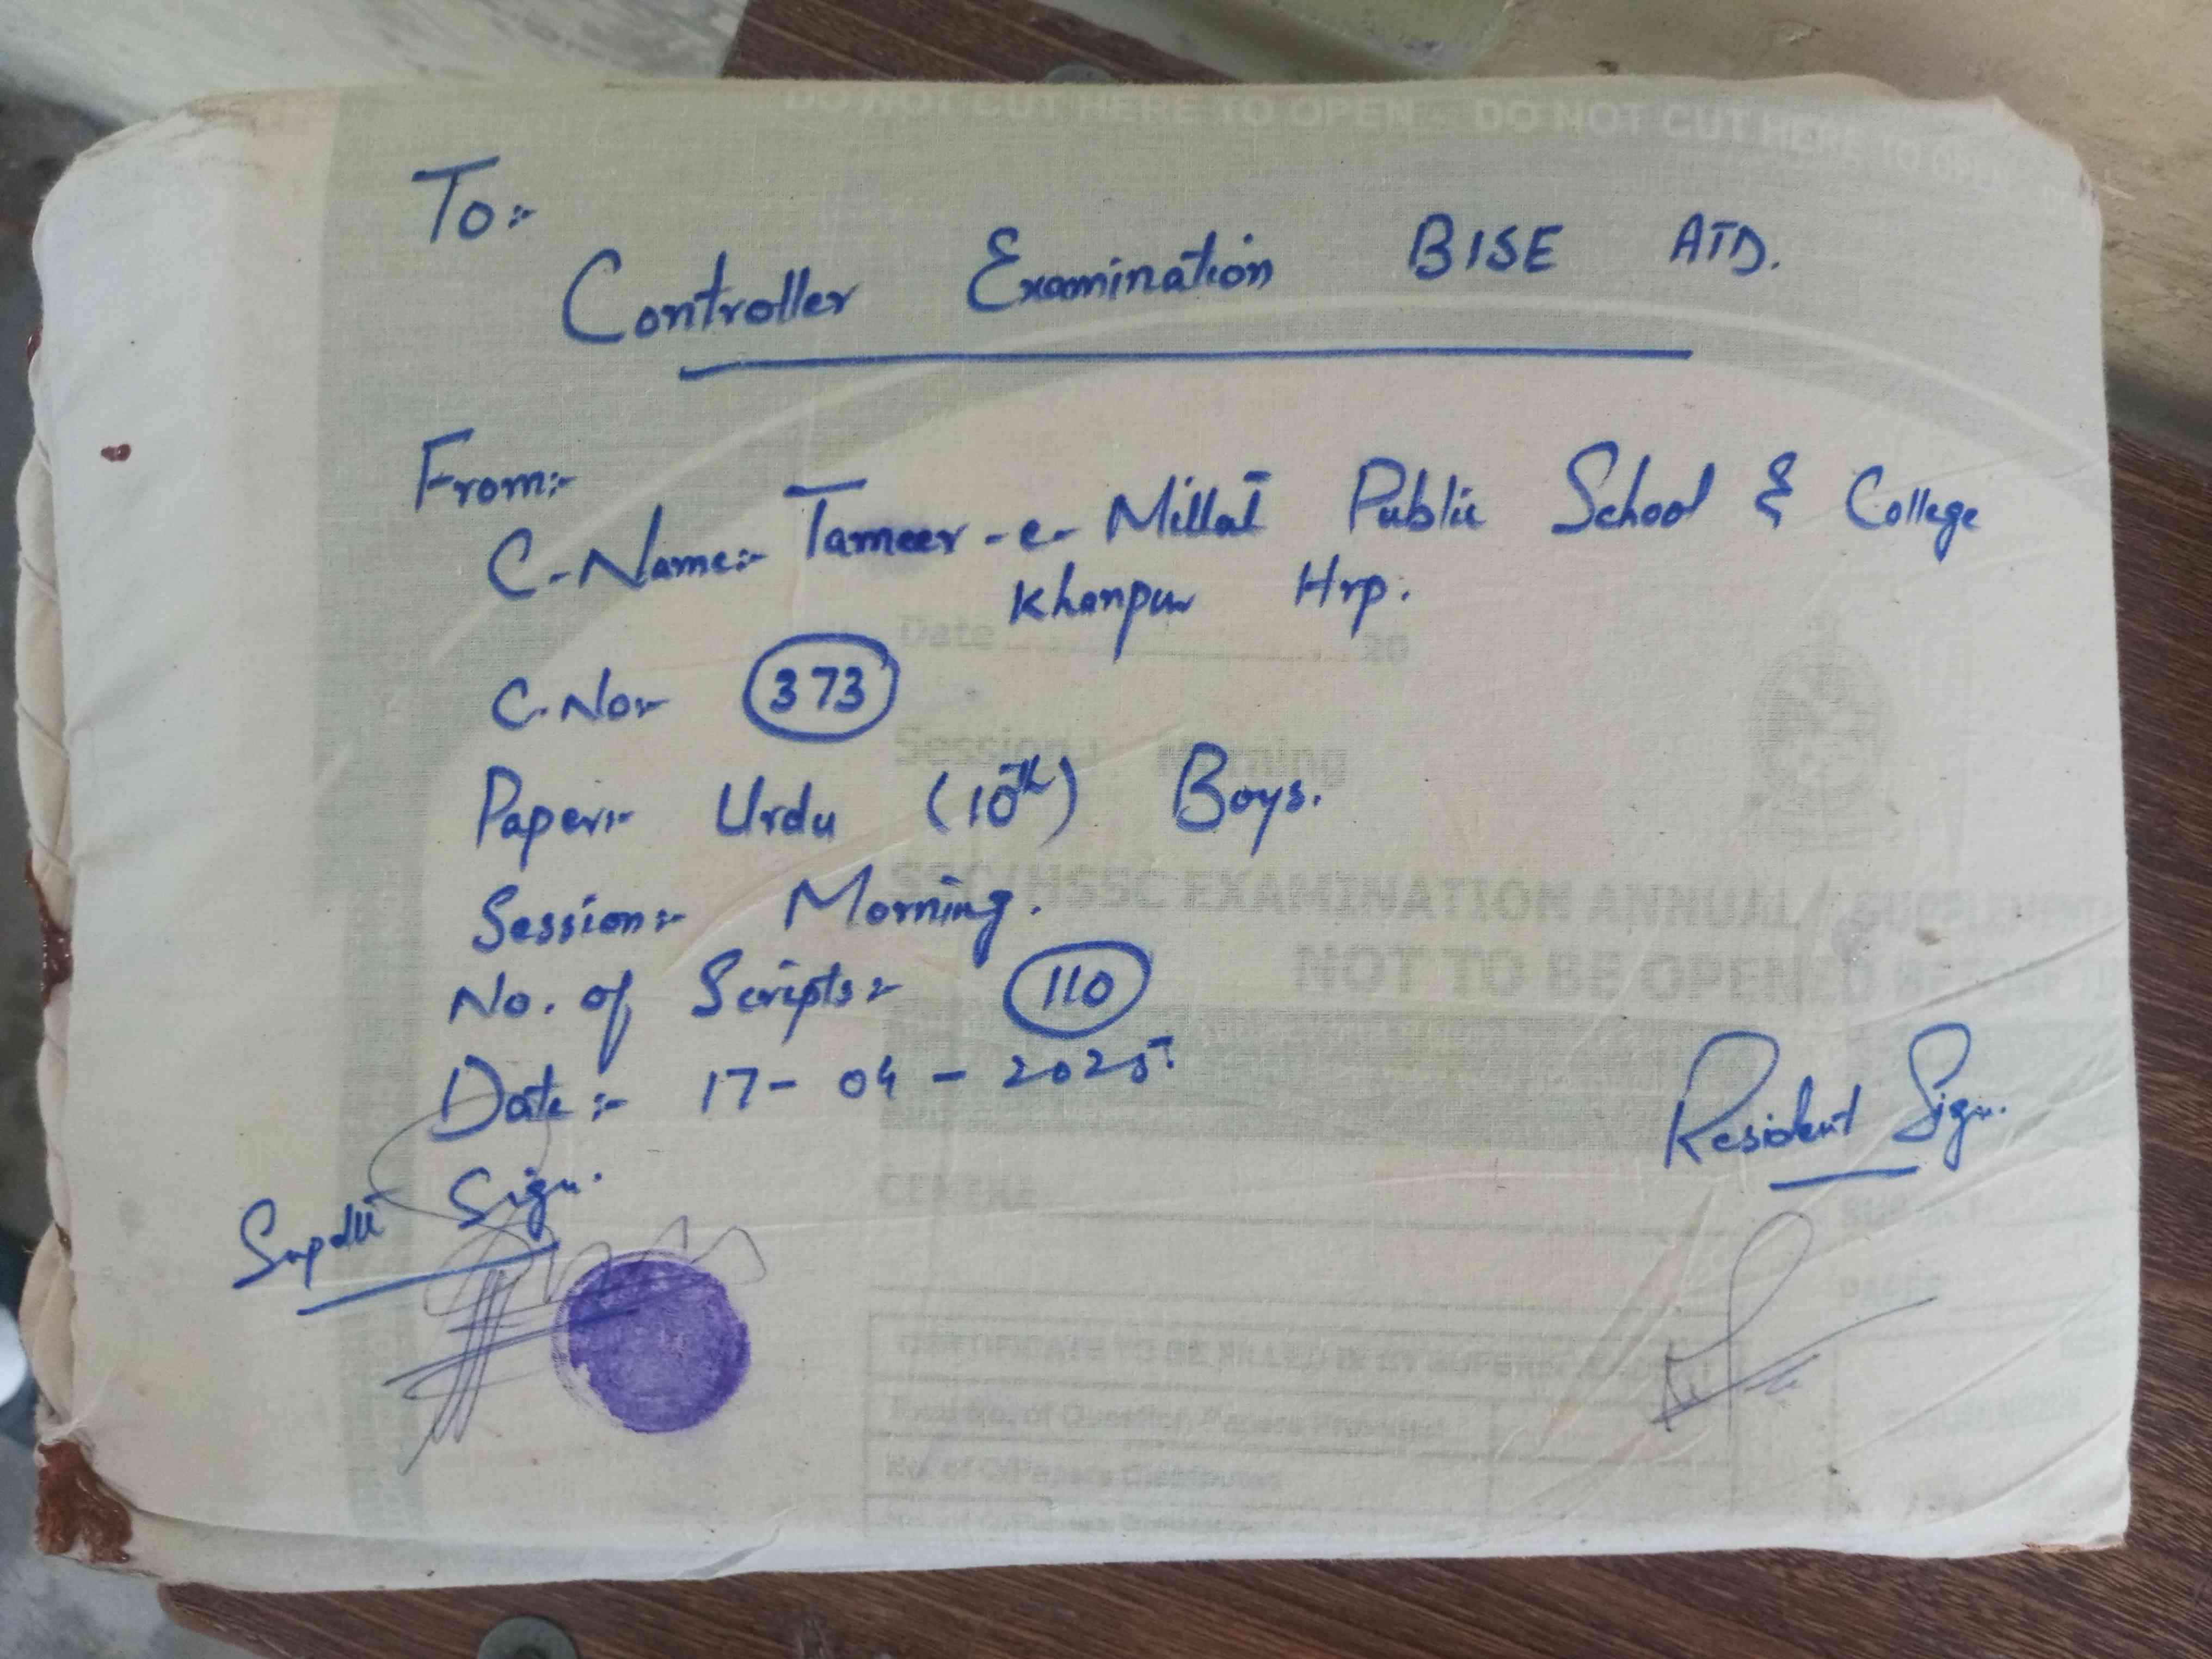 DO NOT CUT HERE TO OPEN - DO NOT CUT HERE TO OPEN
To:-
Controller Examination BISE ATD.
From:-
C-Name:- Tameer-e-Millat Public School & College
Khanpur Hrp.
Date 20
C.No:- 373
Session: Morning
Paper:- Urdu (10th) Boys.
SSC/HSSC EXAMINATION ANNUAL/
Session:- Morning.
NOT TO BE OPENED
No. of Scripts:- 110
Date:- 17-04-2025.
Resident Sign.
Supdtt Sign.
CENTRE
CERTIFICATE TO BE FILLED IN BY
Total No. of Question Papers